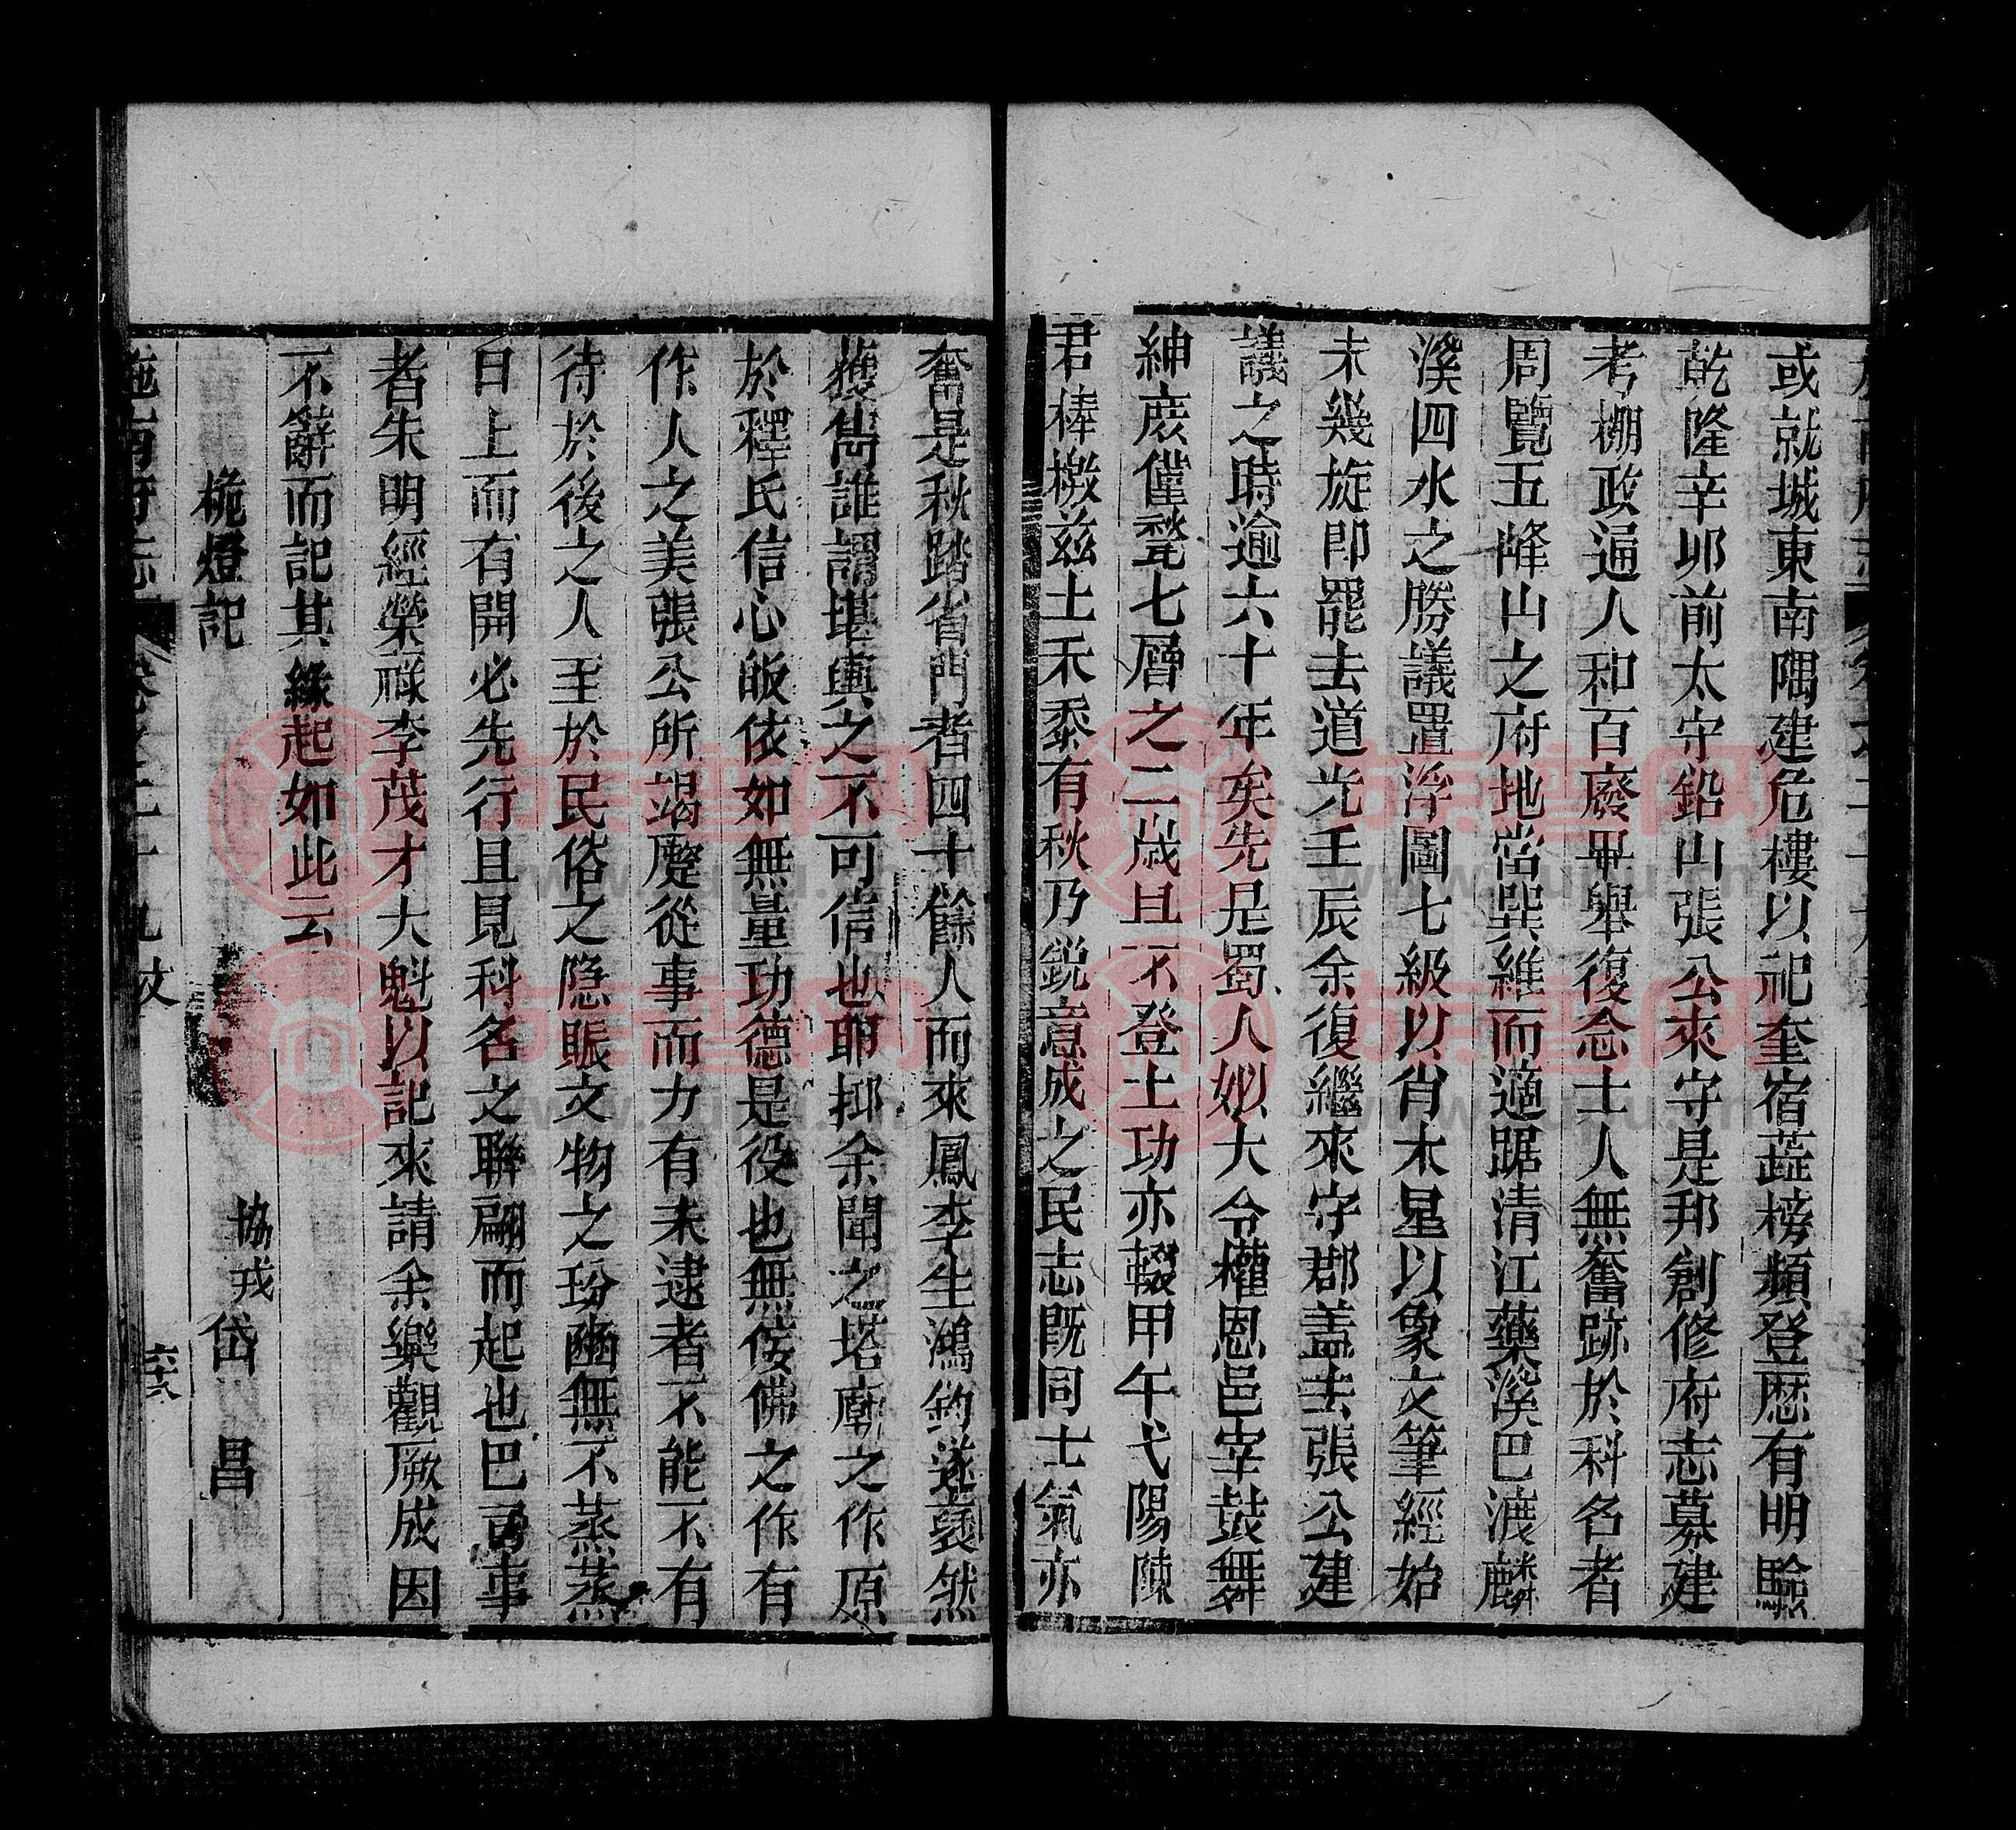 或就城東南隅建危樓以祀奎宿蔬榜頻登歷有明驗
乾隆辛卯前太守鉛山張公來守是邦創修府志募建
考棚政通人和百廢畢舉復念士人無奮跡於科名者
周覽五峰山之府地當巽維而適踞清江藥溪巴濊麟
溪四水之勝議置浮圖七級以肖木星以象文筆經始
未幾旋即罷去道光壬辰余復繼來守郡盖去張公建
議之時逾六十年矣先是蜀人姒大令權恩邑宰鼓舞
紳庶僅甃七層之二歲且不登土功亦輟甲午弋陽陳
君棒檄兹土禾黍有秋乃銳意成之民志既同士氣亦
奮是秋踏省門者四十餘人而來鳳李生鴻鈞遂裒然
獲雋誰謂堪輿之不可信也耶抑余聞之塔廟之作原
於釋氏信心皈依如無量功德是役也無佞佛之作有
作人之美張公所竭蹷從事而力有未逮者不能不有
待於後之人至於民俗之隱賑文物之玢豳無不蒸蒸
日上而有開必先行且見科名之聯翩而起也巴司事
者朱明經榮祿李茂才大魁以記來請余樂觀厥成因
不辭而記其緣起如此云
桅燈記
協戎 岱 昌
施南府志
卷之二十九 文
六十六